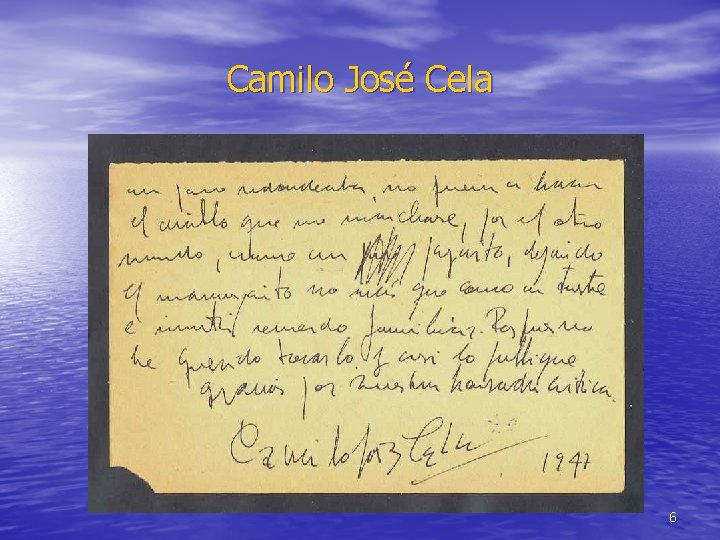 Camilo José Cela
un poco redondeaba, no fuera a hacer
el diablo que me marchase, por el otro
mundo, como un pajarito, dejando
el manuscrito no más que como un triste
e inútil recuerdo familiar. Por eso no
he querido tocarlo y casi lo publiqué
gracias por nuestra honrada crítica.
Camilo José Cela
1947
6